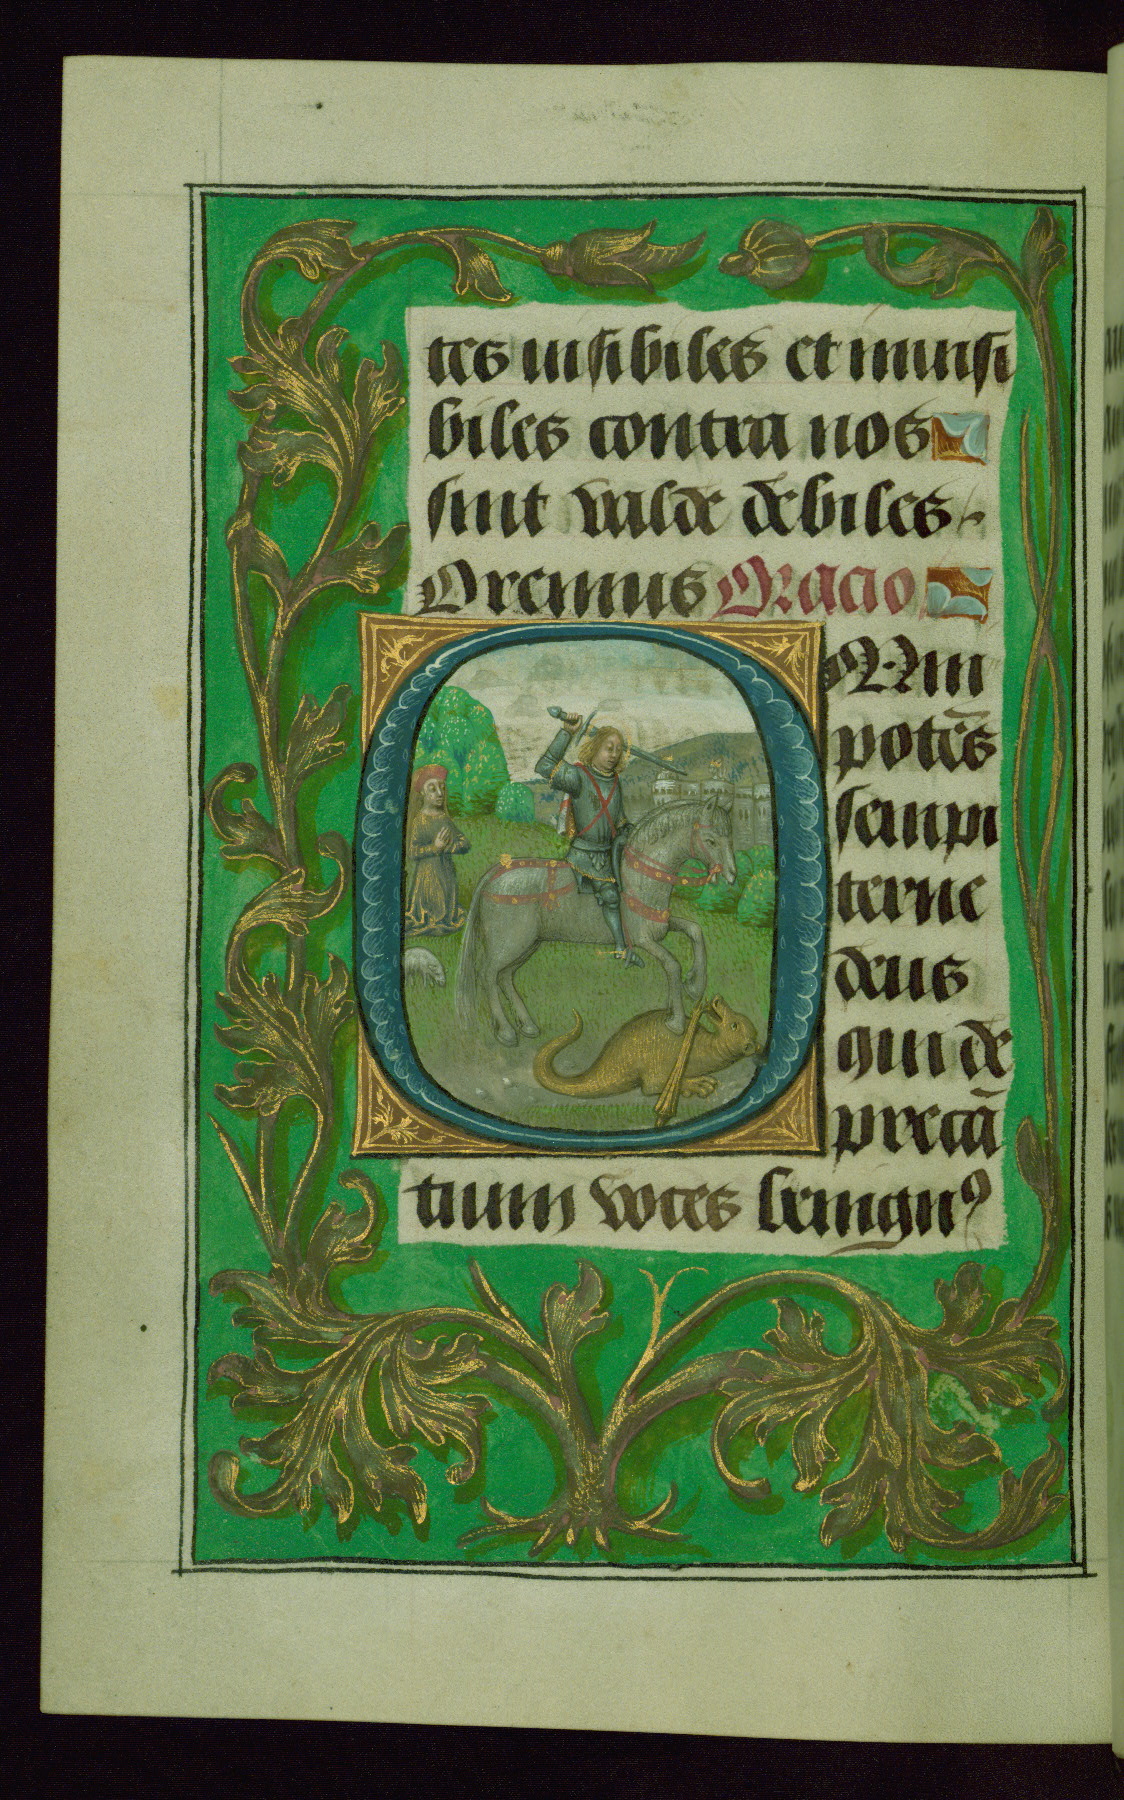 tes uisibiles et inuisi
biles contra nos
sint valde debiles.
Oremus Oracio
OMni
potēs
sempi
terne
deus
qui de
precā
tium voces benignꝰ